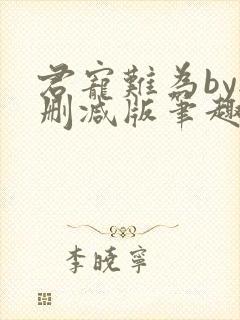 君寵難為by
刪減版筆趣
李曉寧